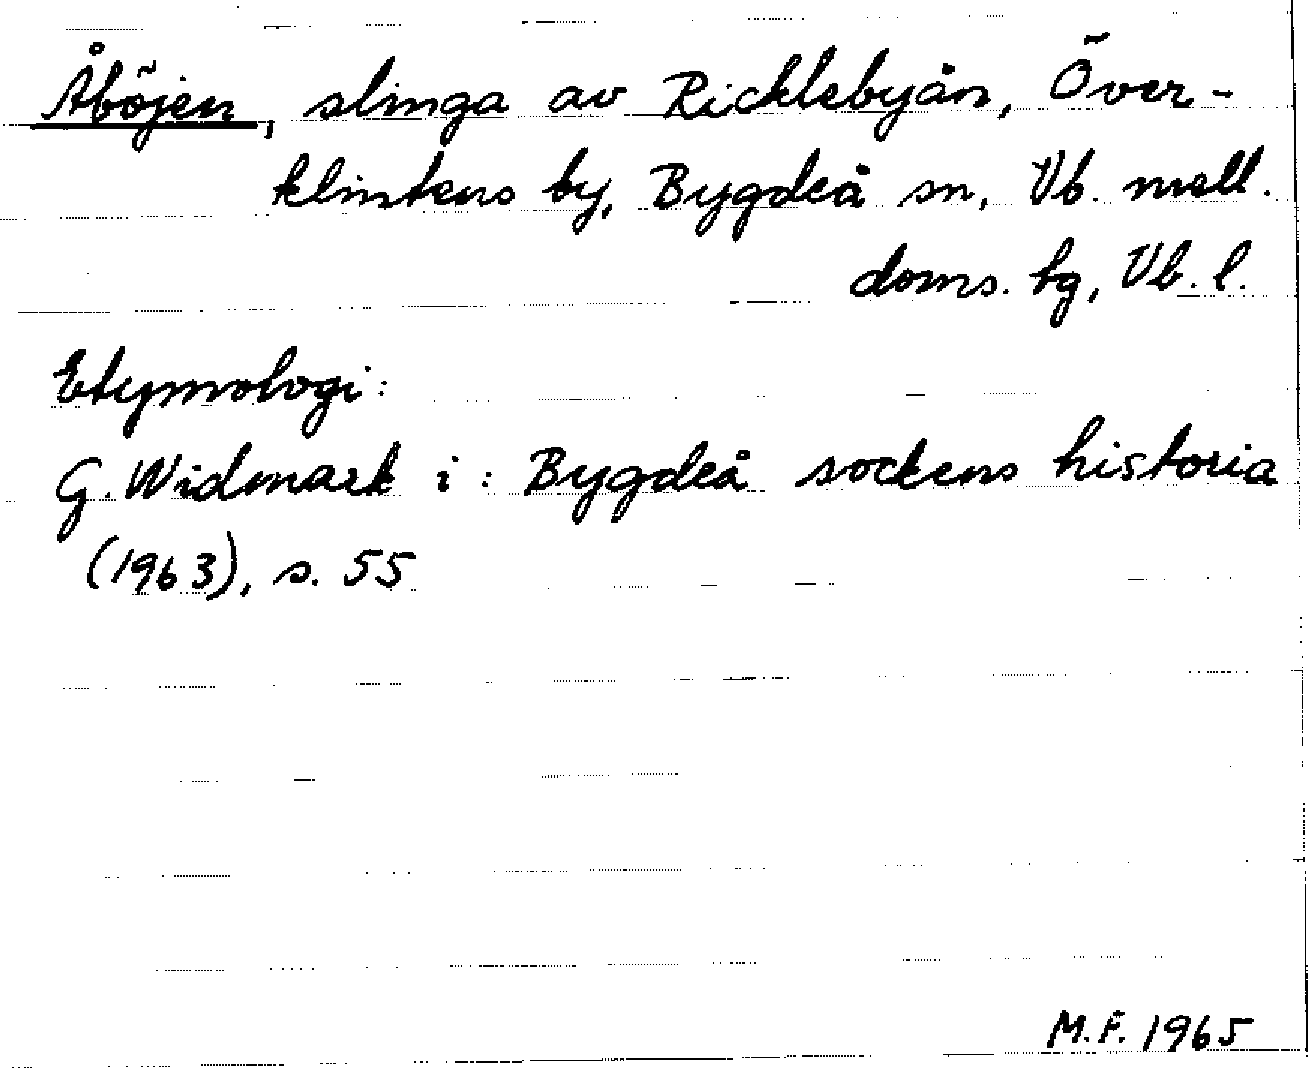 Åböjen, slinga av Ricklebyån, Över-
klintens by, Bygdeå sn, Vb. mell.
doms. hg, Vb. l.
Etymologi:
G. Widmark i: Bygdeå sockens historia
(1963), s. 55
M.F. 1965